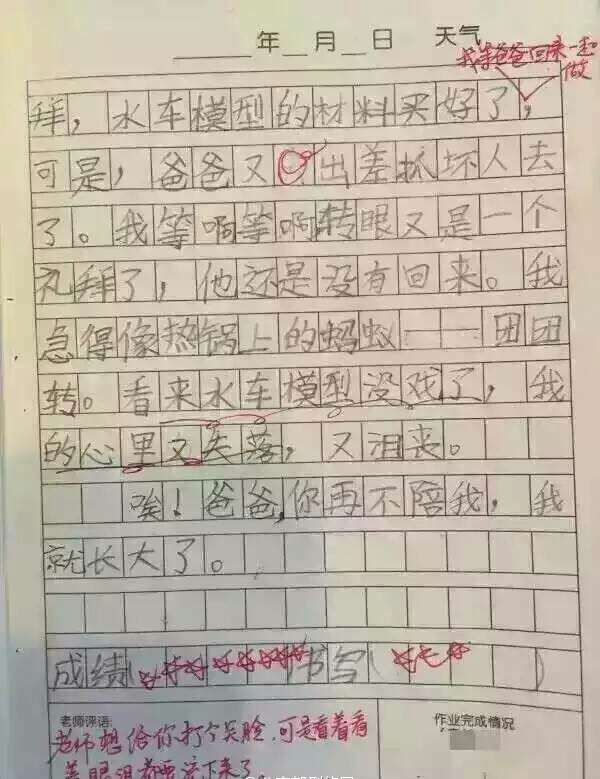 年 月 日 天气
我等爸爸回来一起做
拜，水车模型的材料买好了，
可是，爸爸又出差抓坏人去
了。我等啊等啊转眼又是一个
礼拜了，他还是没有回来。我
急得像热锅上的蚂蚁——团团
转。看来水车模型没戏了，我
的心里又失落，又沮丧。
唉！爸爸，你再不陪我，我
就长大了。
成绩( 书写( )
老师评语： 作业完成情况
老师想给你打个笑脸，可是看着看
着眼泪都要流下来了